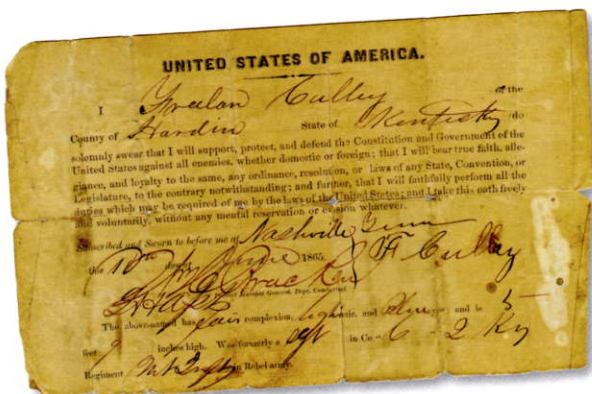 UNITED STATES OF AMERICA.
I Frealan Culley of the
County of Hardin State of Kentucky do
solemnly swear that I will support, protect, and defend the Constitution and Government of the
United States against all enemies, whether domestic or foreign; that I will bear true faith, alle-
giance, and loyalty to the same, any ordinance, resolution, or laws of any State, Convention, or
Legislature, to the contrary notwithstanding; and further, that I will faithfully perform all the
duties which may be required of me by the laws of the United States; and I take this oath freely
and voluntarily, without any mental reservation or evasion whatever.
Subscribed and Sworn to before me at Nashville Tenn
this 10th day 1865. F Culley
General, Dep't Cumberland
The above-named has fair complexion, light hair, and Blue eyes; and is 5
feet 9 inches high. Was formerly a Sgt in Co. C 2 Ky
Regiment in Rebel army.